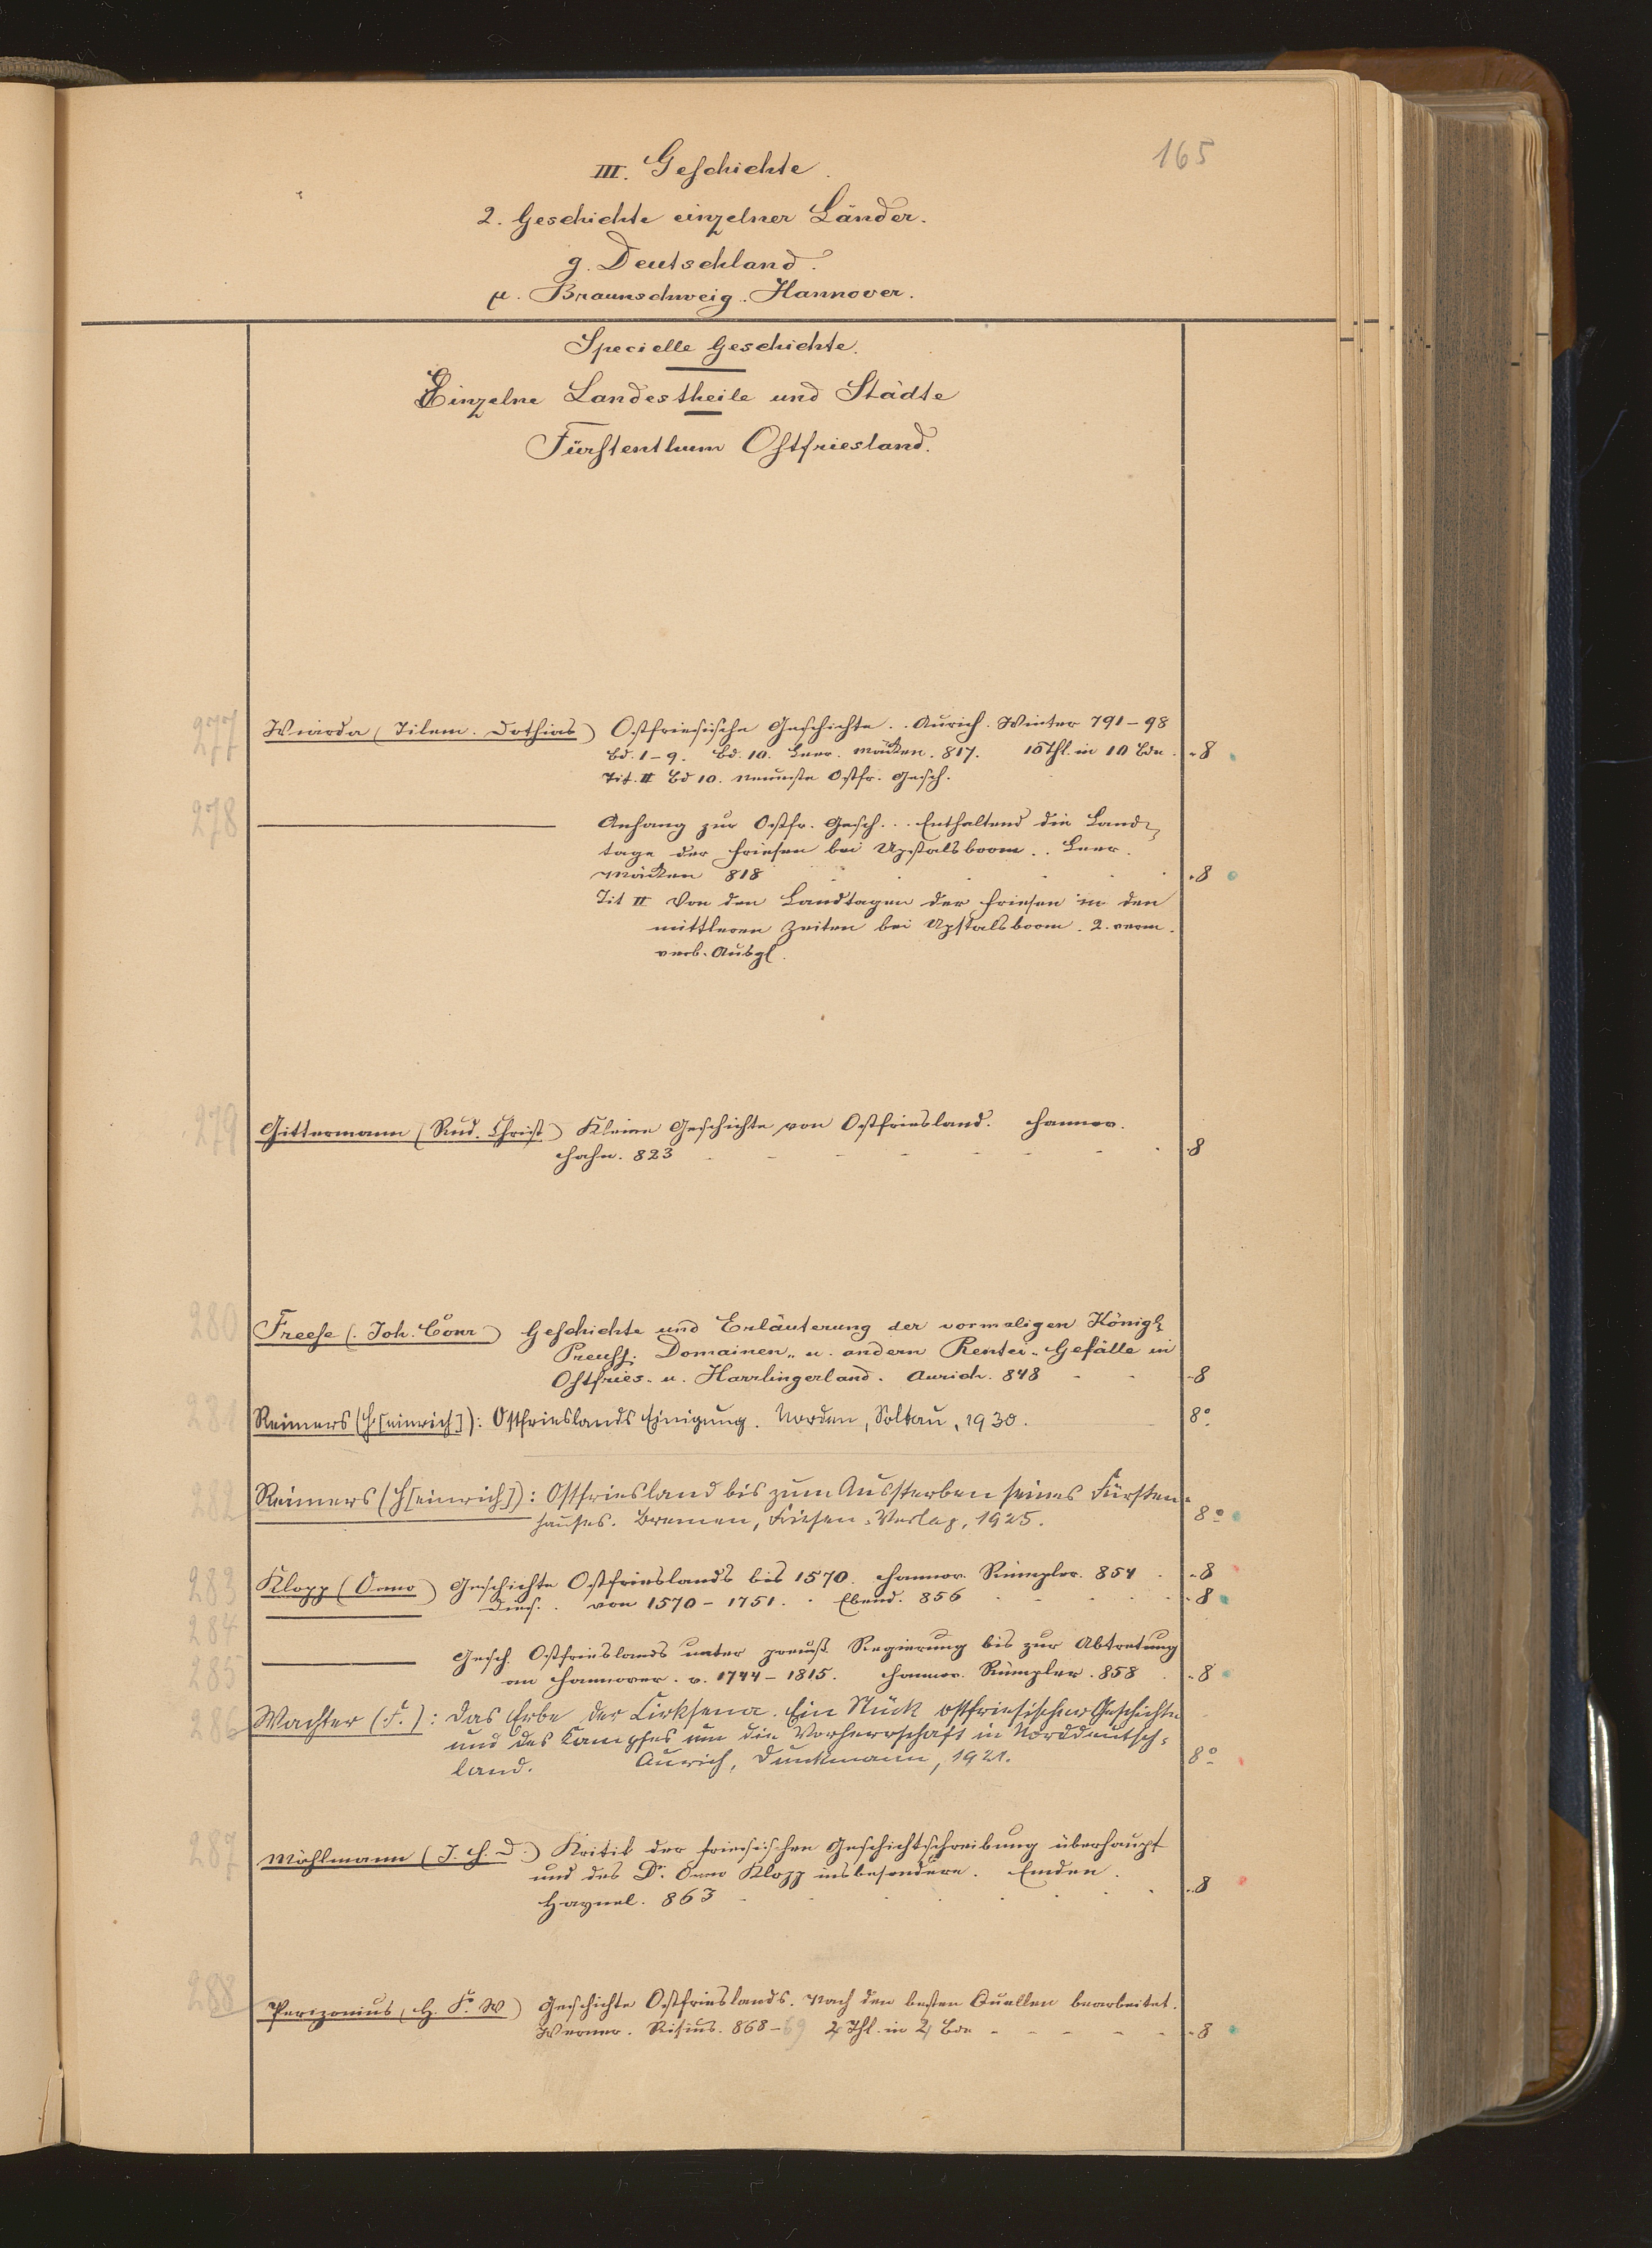 165
III. Geschichte.
2. Geschichte einzelner Länder.
g. Deutschland.
μ. Braunschweig. Hannover.
Specielle Geschichte.
Einzelne Landestheile und Städte
Fürstenthum Ostfriesland.
277 Wiarda (Tilem. Dothias) Ostfriesische Geschichte.. Aurich. Winter 791-98
Bd. 1-9. Bd. 10. Leer. Mäcken. 817. 10 Thl. in 10 Bdn. -8
Tit. II Bd 10. Neueste Ostfr. Gesch.
278 Anhang zur Ostfr. Gesch... Enthaltend die Land-
tage der Friesen bei Upstalsboom.. Leer.
Mäcken 818 -8
Tit II Von den Landtagen der Friesen in den
mittleren Zeiten bei Upstalsboom. 2. verm.
verb. Ausgl.
279 Gittermann (Rud. Christ) Kleine Geschichte von Ostfriesland. Hannov.
Hahn. 823 -8
280 Freese (Joh. Conr) Geschichte und Erläuterung der vormaligen Königl.
Preuss. Domainen- u. andern Rentei-Gefälle in
Ostfries- u. Harrlingerland. Aurich. 848 -8
281 Reimers (H[einrich]): Ostfrieslands Einigung. Norden, Soltau, 1930. 8°
282 Reimers (H[einrich]): Ostfriesland bis zum Aussterben seines Fürsten-
hauses. Bremen, Friesen-Verlag, 1925. 8°
283 Klopp (Onno) Geschichte Ostfrieslands bis 1570. Hannov. Rümpler. 854 -8
284 Dies.. von 1570-1751. Ebend. 856 -8
285 Gesch. Ostfrieslands unter preuß Regierung bis zur Abtretung
an Hannover. v. 1744-1815. Hannov. Rümpler. 858 -8
286 Wachter (F.): Das Erbe der Cirksena. Ein Stück ostfriesischer Geschichte
und des Kampfes um die Vorherrschaft in Norddeutsch-
land. Aurich, Dunkmann, 1921. 8°
287 Möhlmann (J. H. D.) Kritik der friesischen Geschichtschreibung überhaupt
und des Dr. Onno Klopp insbesondere. Emden.
Haynel. 863 -8
288 Perizonius (H. F. W) Geschichte Ostfrieslands. Nach den besten Quellen bearbeitet.
Weener. Risius. 868-69 4 Thl. in 4 Bdn -8